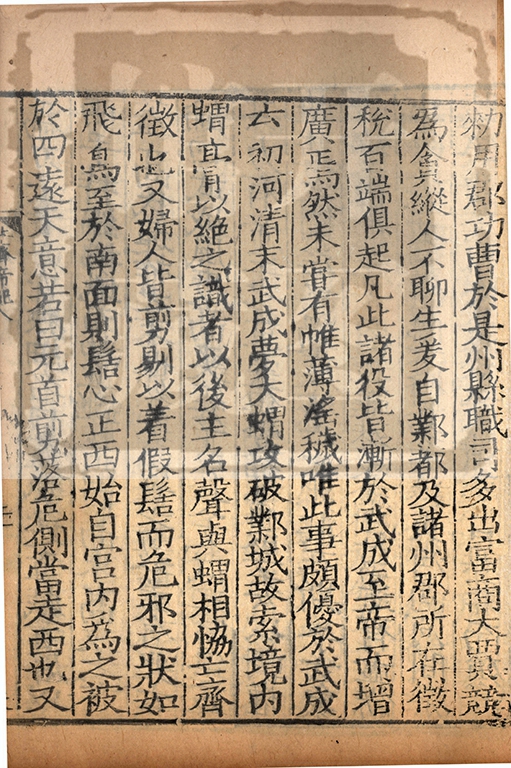 勑用郡功曹於是州縣職司多出富商大賈競
為貪縱人不聊生爰自鄴都及諸州郡所在徵
稅百端俱起凡此諸役皆漸於武成至帝而增
廣焉然未嘗有帷薄滛穢唯此事頗優於武成
云初河清末武成夢大蝟攻破鄴城故索境内
蝟膏以絶之識者以後主名聲與蝟相恊亡齊
徵也又婦人皆剪剔以着假髻而危邪之狀如
飛鳥至於南面則髻心正西始自宫内為之被
於四遠天意若曰元首剪落危側當走西也又